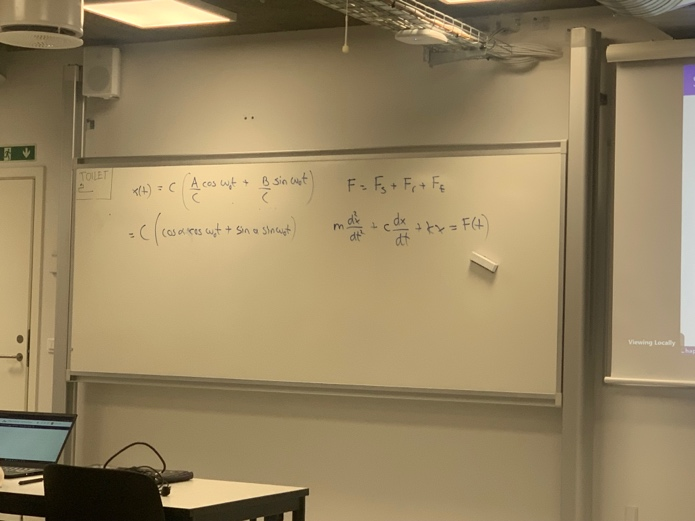 TOILET
x(t) = C (A/C cos ω₀t + B/C sin ω₀t)
= C (cos α cos ω₀t + sin α sin ω₀t)
F = Fₛ + Fᵣ + Fₑ
m d²x/dt² + c dx/dt + kx = F(t)
Viewing Locally